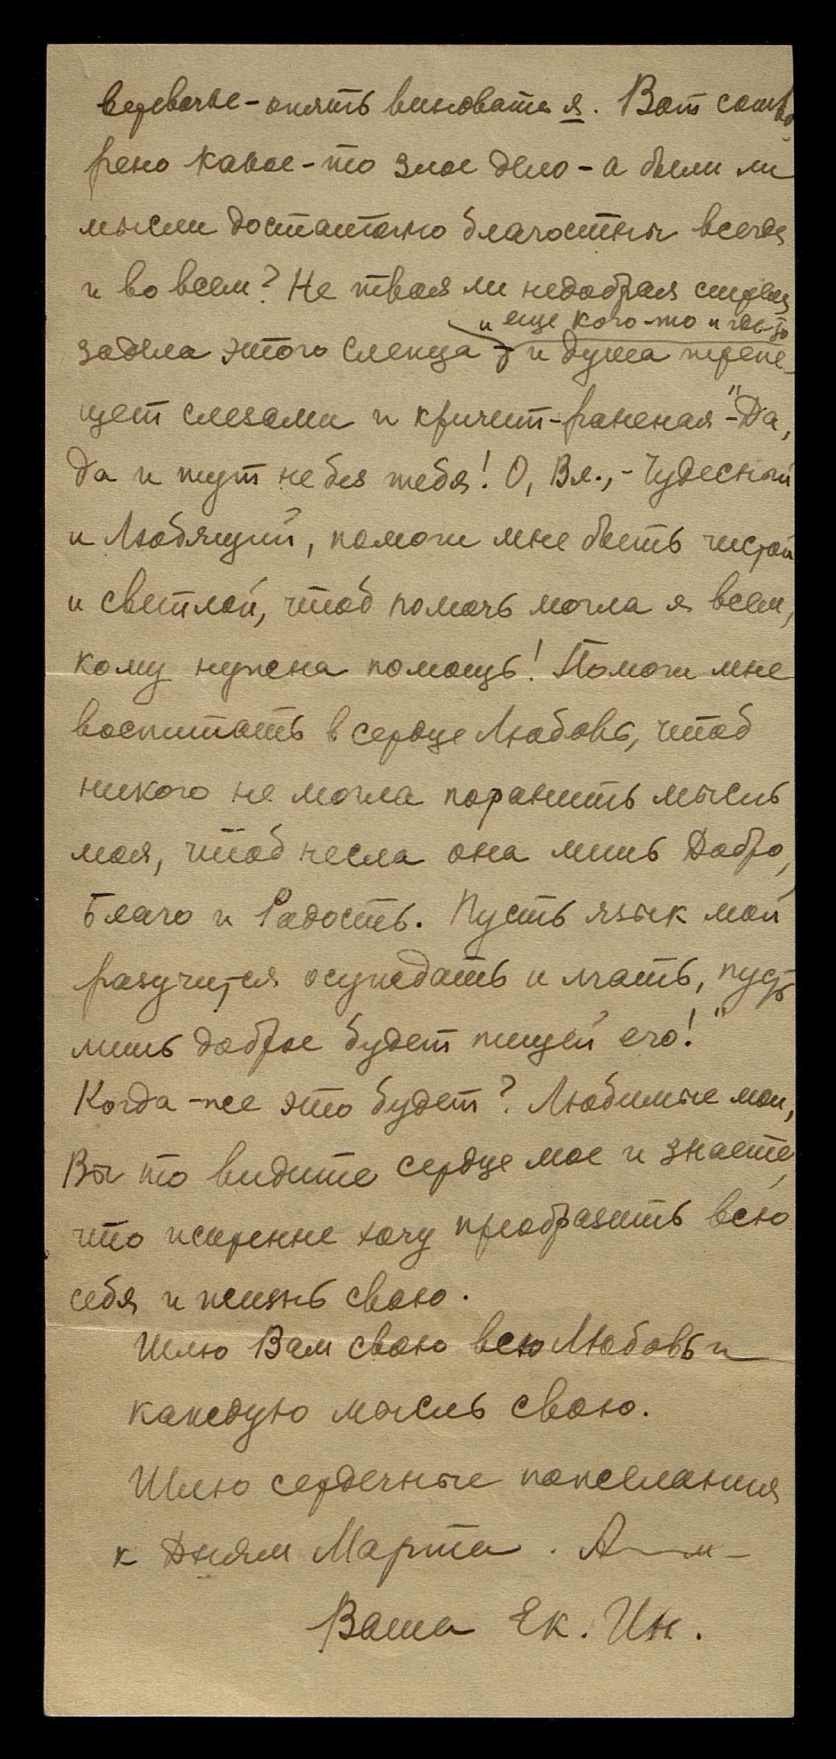 веревочке - опять виновата я. Вот сотво
рено какое-то злое дело - а были ли
мысли достаточно благостны всегда
и во всем? Не твоя ли недобрая стрела
и еще кого-то и где-то
задела этого слепца - и душа трепе-
щет слезами и кричит - раненая - "Да,
да и тут не без тебя! О, Вл., - Чудесный
и Любящий, помоги мне быть чистой
и светлой, чтоб помочь могла я всем,
кому нужна помощь! Помоги мне
воспитать в сердце Любовь, чтоб
никого не могла поранить мысль
моя, чтоб несла она лишь Добро,
Благо и Радость. Пусть язык мой
разучится осуждать и лгать, пусть
лишь доброе будет пищей его!"
Когда-же это будет? Любимые мои,
Вы то видите сердце мое и знаете,
что искренне хочу преобразить всю
себя и жизнь свою.
Шлю Вам свою всю Любовь и
каждую мысль свою.
Шлю сердечные пожелания
к Дням Марта.
Ваша Ек. Ин.